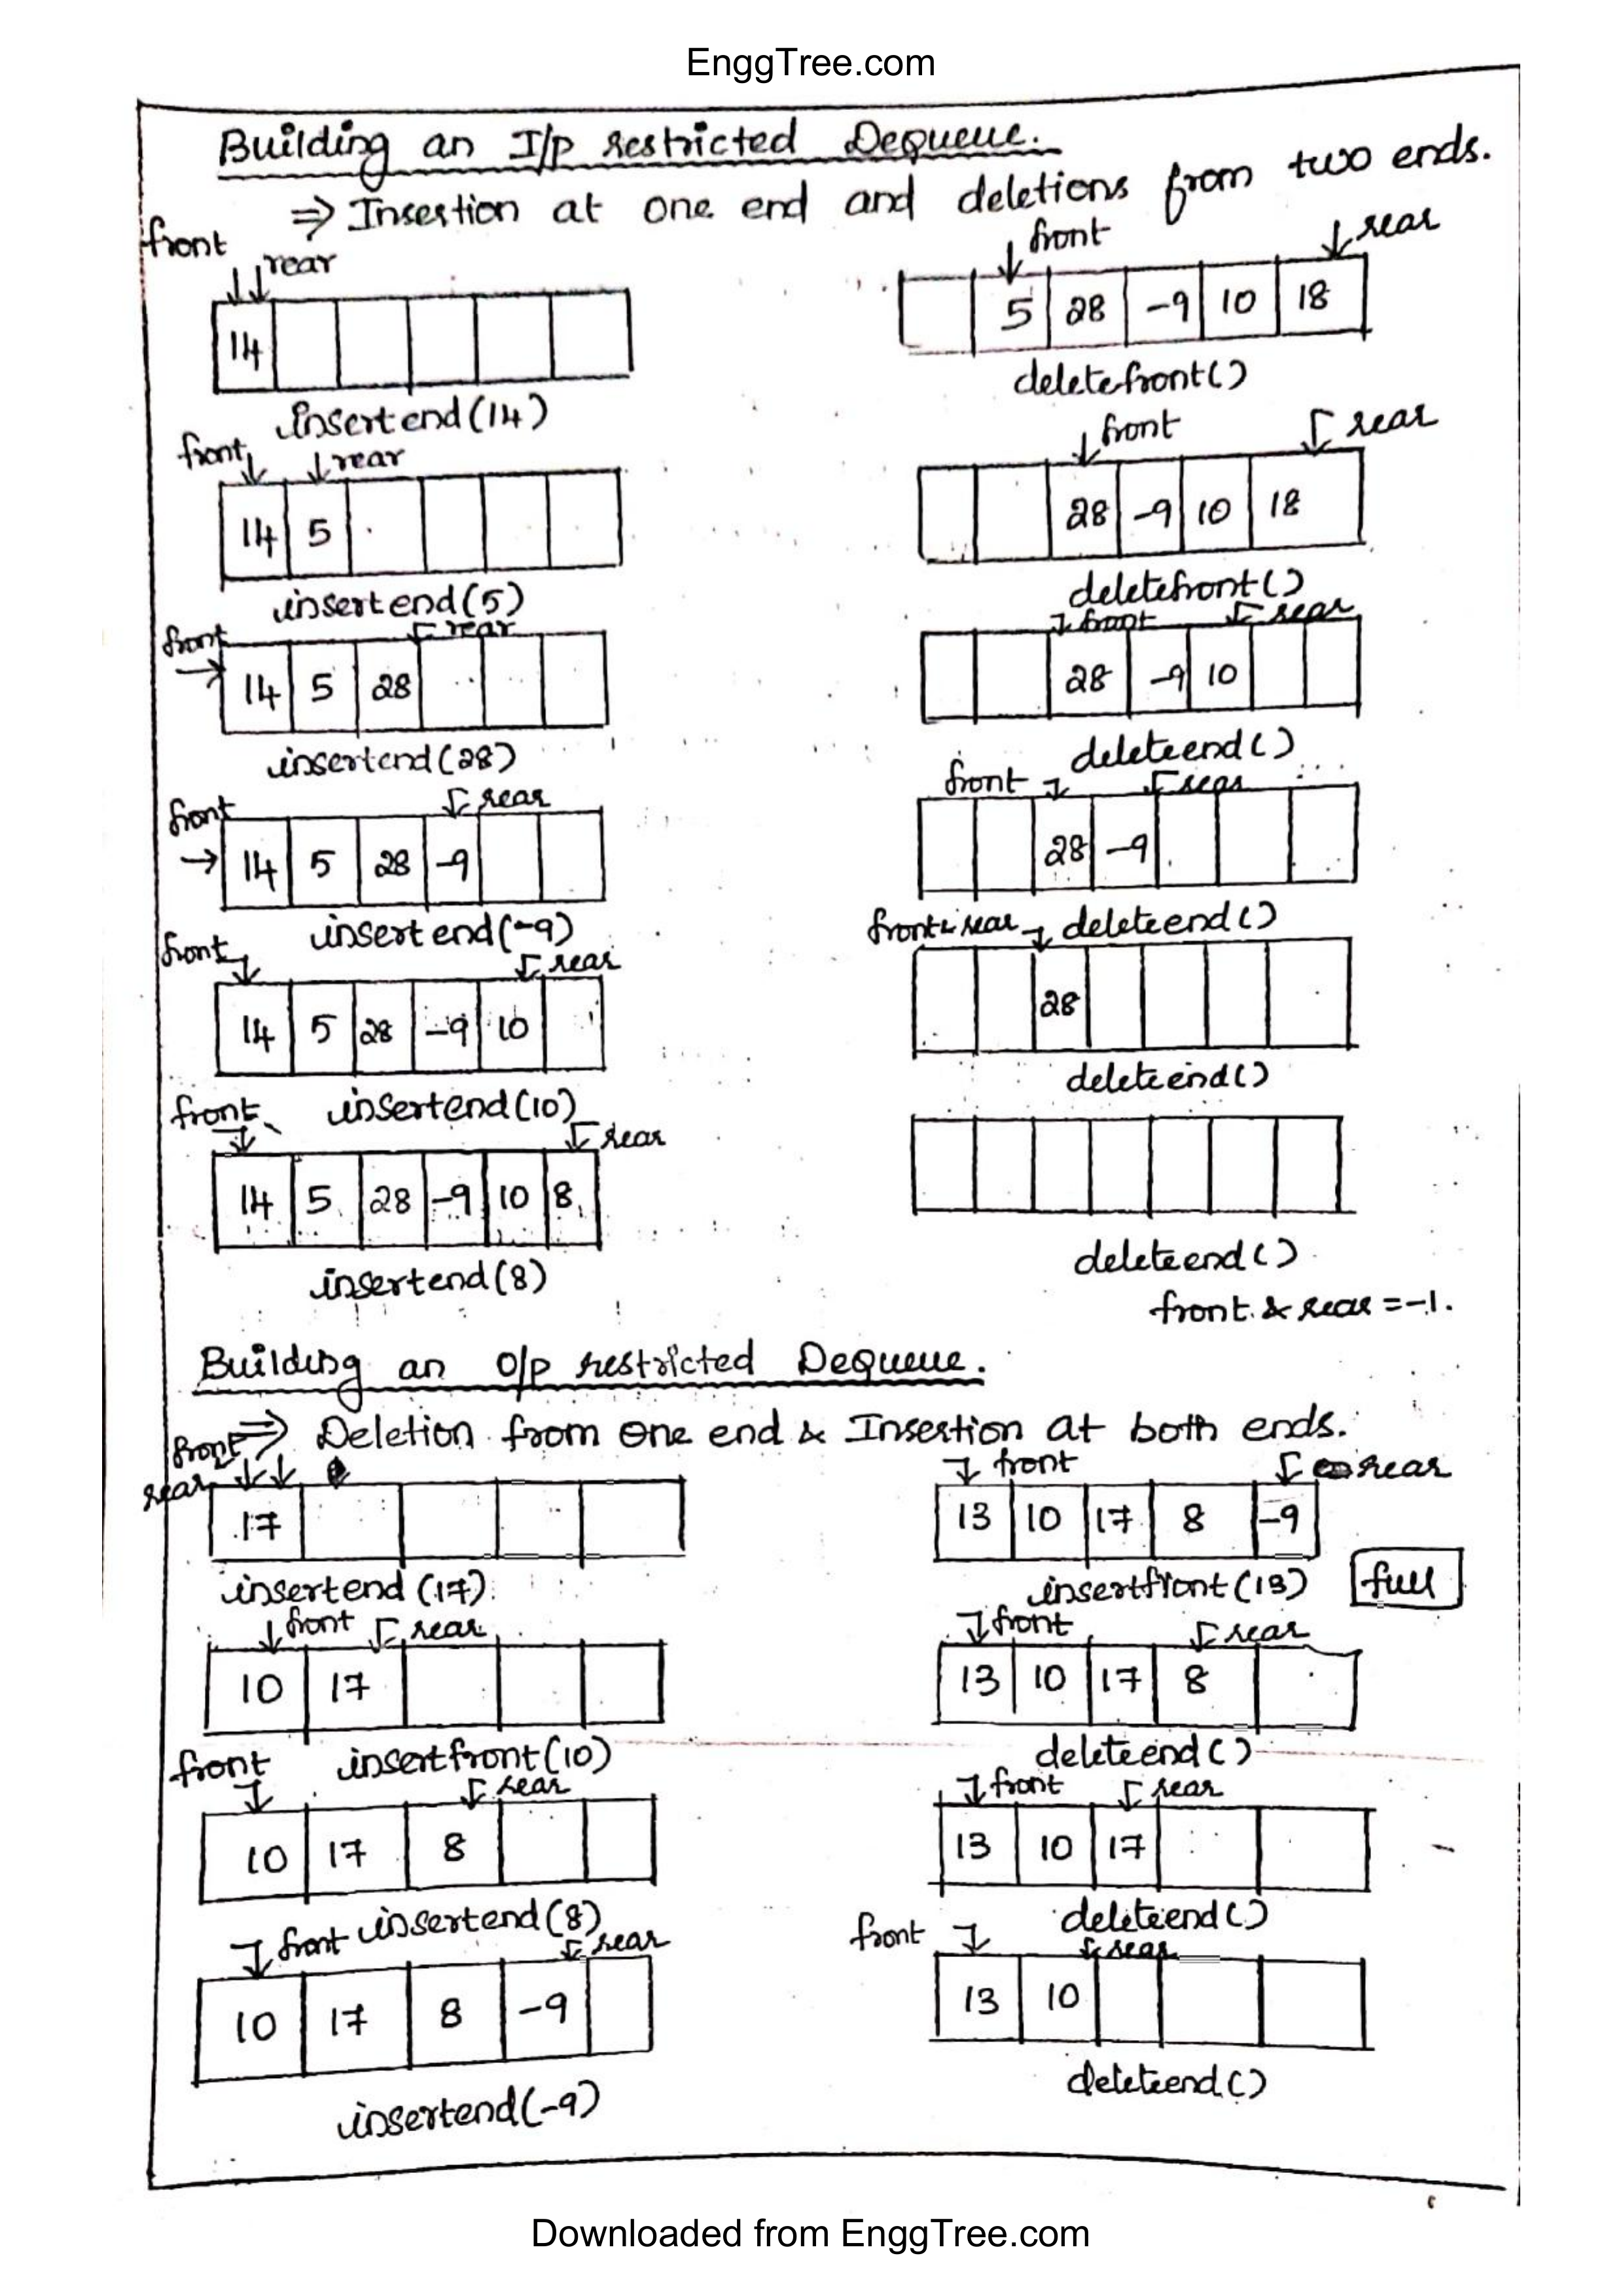 EnggTree.com
Building an I/p restricted Dequeue.
⇒ Insertion at one end and deletions from two ends.
front
rear
14
insertend(14)
front
rear
14 5
insertend(5)
front
rear
14 5 28
insertend(28)
front
rear
14 5 28 -9
insertend(-9)
front
rear
14 5 28 -9 10
insertend(10)
front
rear
14 5 28 -9 10 8
insertend(8)
front
rear
5 28 -9 10 18
deletefront()
front
rear
28 -9 10 18
deletefront()
front
rear
28 -9 10
deleteend()
front
rear
28 -9
deleteend()
front & rear
28
deleteend()
deleteend()
front & rear = -1.
Building an O/p restricted Dequeue.
⇒ Deletion from one end & Insertion at both ends.
front
rear
17
insertend(17)
front
rear
10 17
insertfront(10)
front
rear
10 17 8
insertend(8)
front
rear
10 17 8 -9
insertend(-9)
front
rear
13 10 17 8 -9
insertfront(13)
full
front
rear
13 10 17 8
deleteend()
front
rear
13 10 17
deleteend()
front
rear
13 10
deleteend()
Downloaded from EnggTree.com